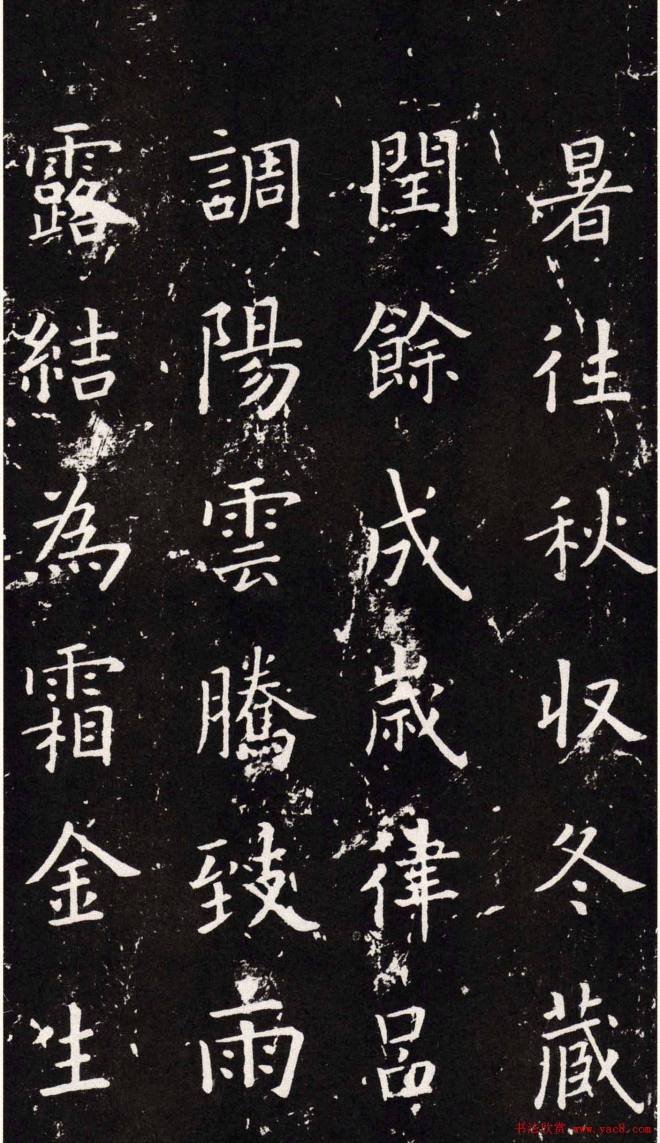 暑往秋収冬藏
閏餘成歲律吕
調陽雲騰致雨
露結為霜金生
书法欣赏 www.yac8.com